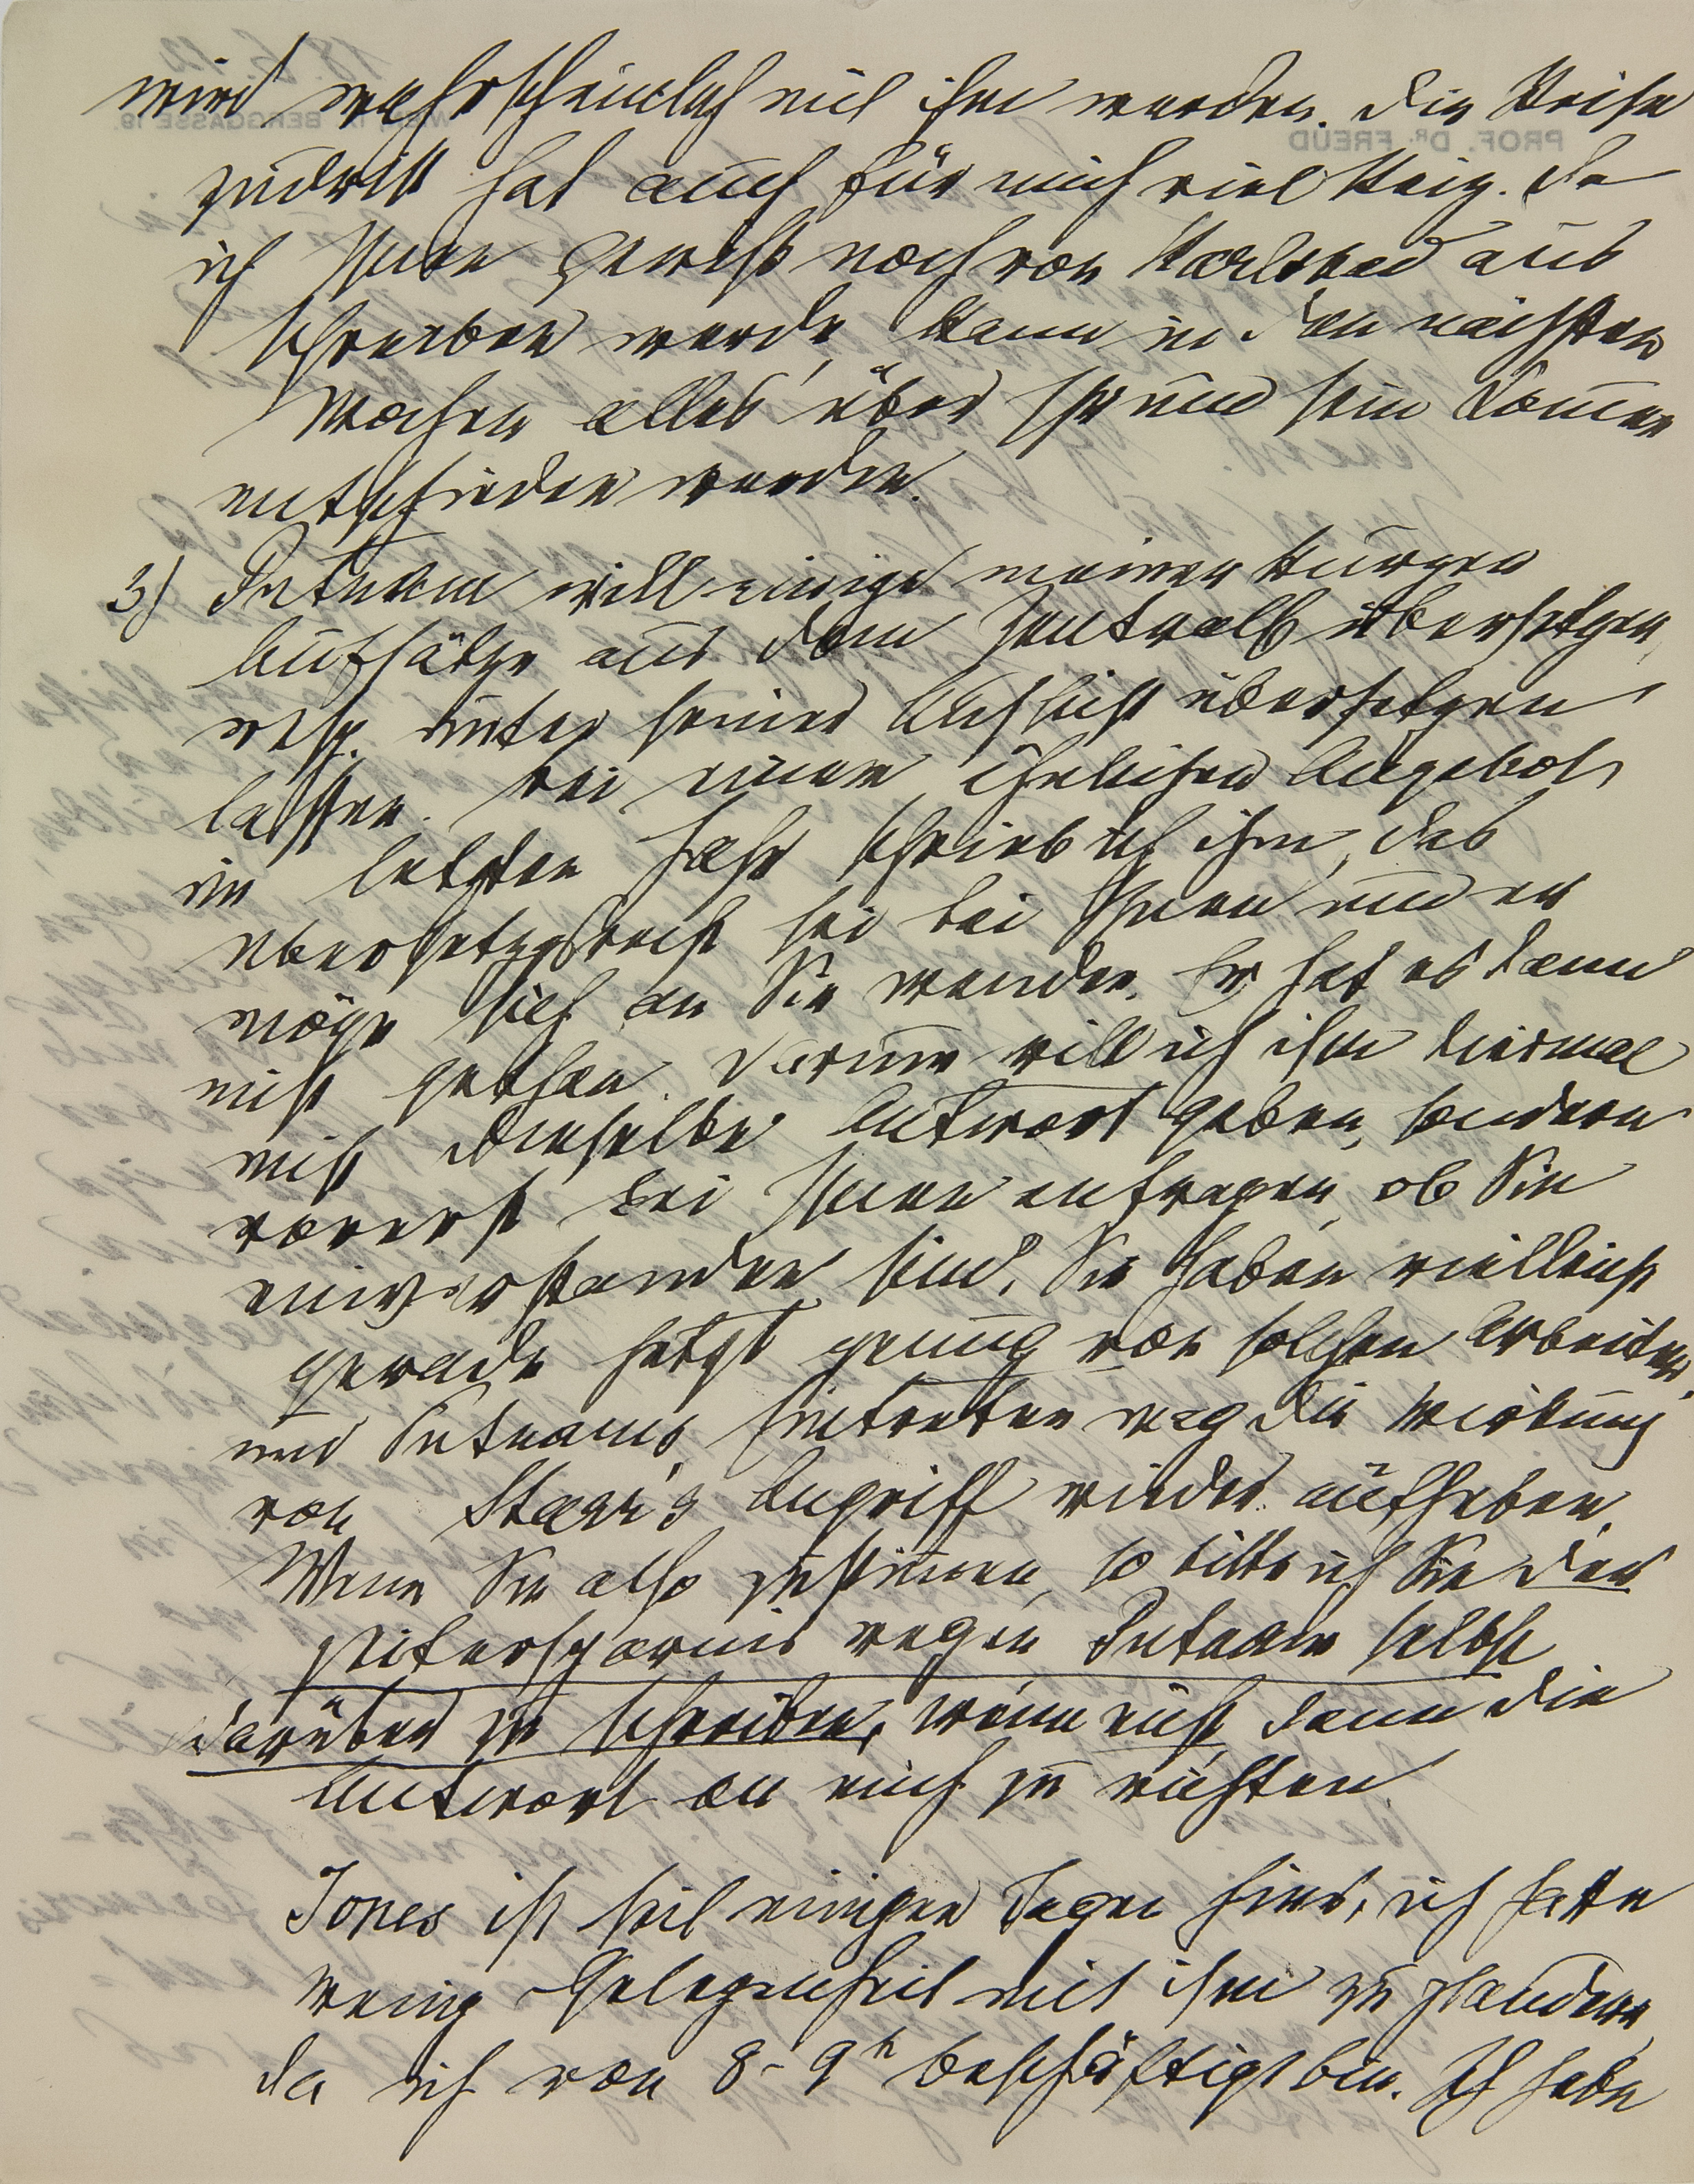 wird wahrscheinlich mit ihm werden. Die Reise
zu dritt hat auch für mich viel Reiz. Da
ich Ihnen gewiß noch von Karlsbad aus
schreiben werde, kann in den nächsten
Wochen alles über Ihr und sein Kommen
entschieden werden.
3) Putnam will einige meiner kurzen
Aufsätze aus dem Zentralb übersetzen,
resp. unter seiner Aufsicht übersetzen
lassen. Bei einem ähnlichen Angebot
im letzten Jahr schrieb ich ihm, das
Übersetzgsrecht sei bei Ihnen und er
möge sich an Sie wenden. Er hat es dann
nicht gethan. Darum will ich ihm diesmal
nicht dieselbe Antwort geben, sondern
vorerst bei Ihnen anfragen, ob Sie
einverstanden sind. Sie haben vielleicht
gerade jetzt genug von solchen Arbeiten,
und Putnams Eintreten mag die Wirkung
von Starr's Angriff wieder aufheben.
Wenn Sie also zustimmen, so bitte ich Sie der
Zeitersparnis wegen Putnam selbst
darüber zu schreiben, wenn nicht dann die
Antwort an mich zu richten.
Jones ist seit einigen Tagen hier, ich hatte
wenig Gelegenheit mit ihm zu plaudern,
da ich von 8–9h beschäftigt bin. Ich habe
PROF. DR. FREUD
WIEN, IX. BERGGASSE 19.